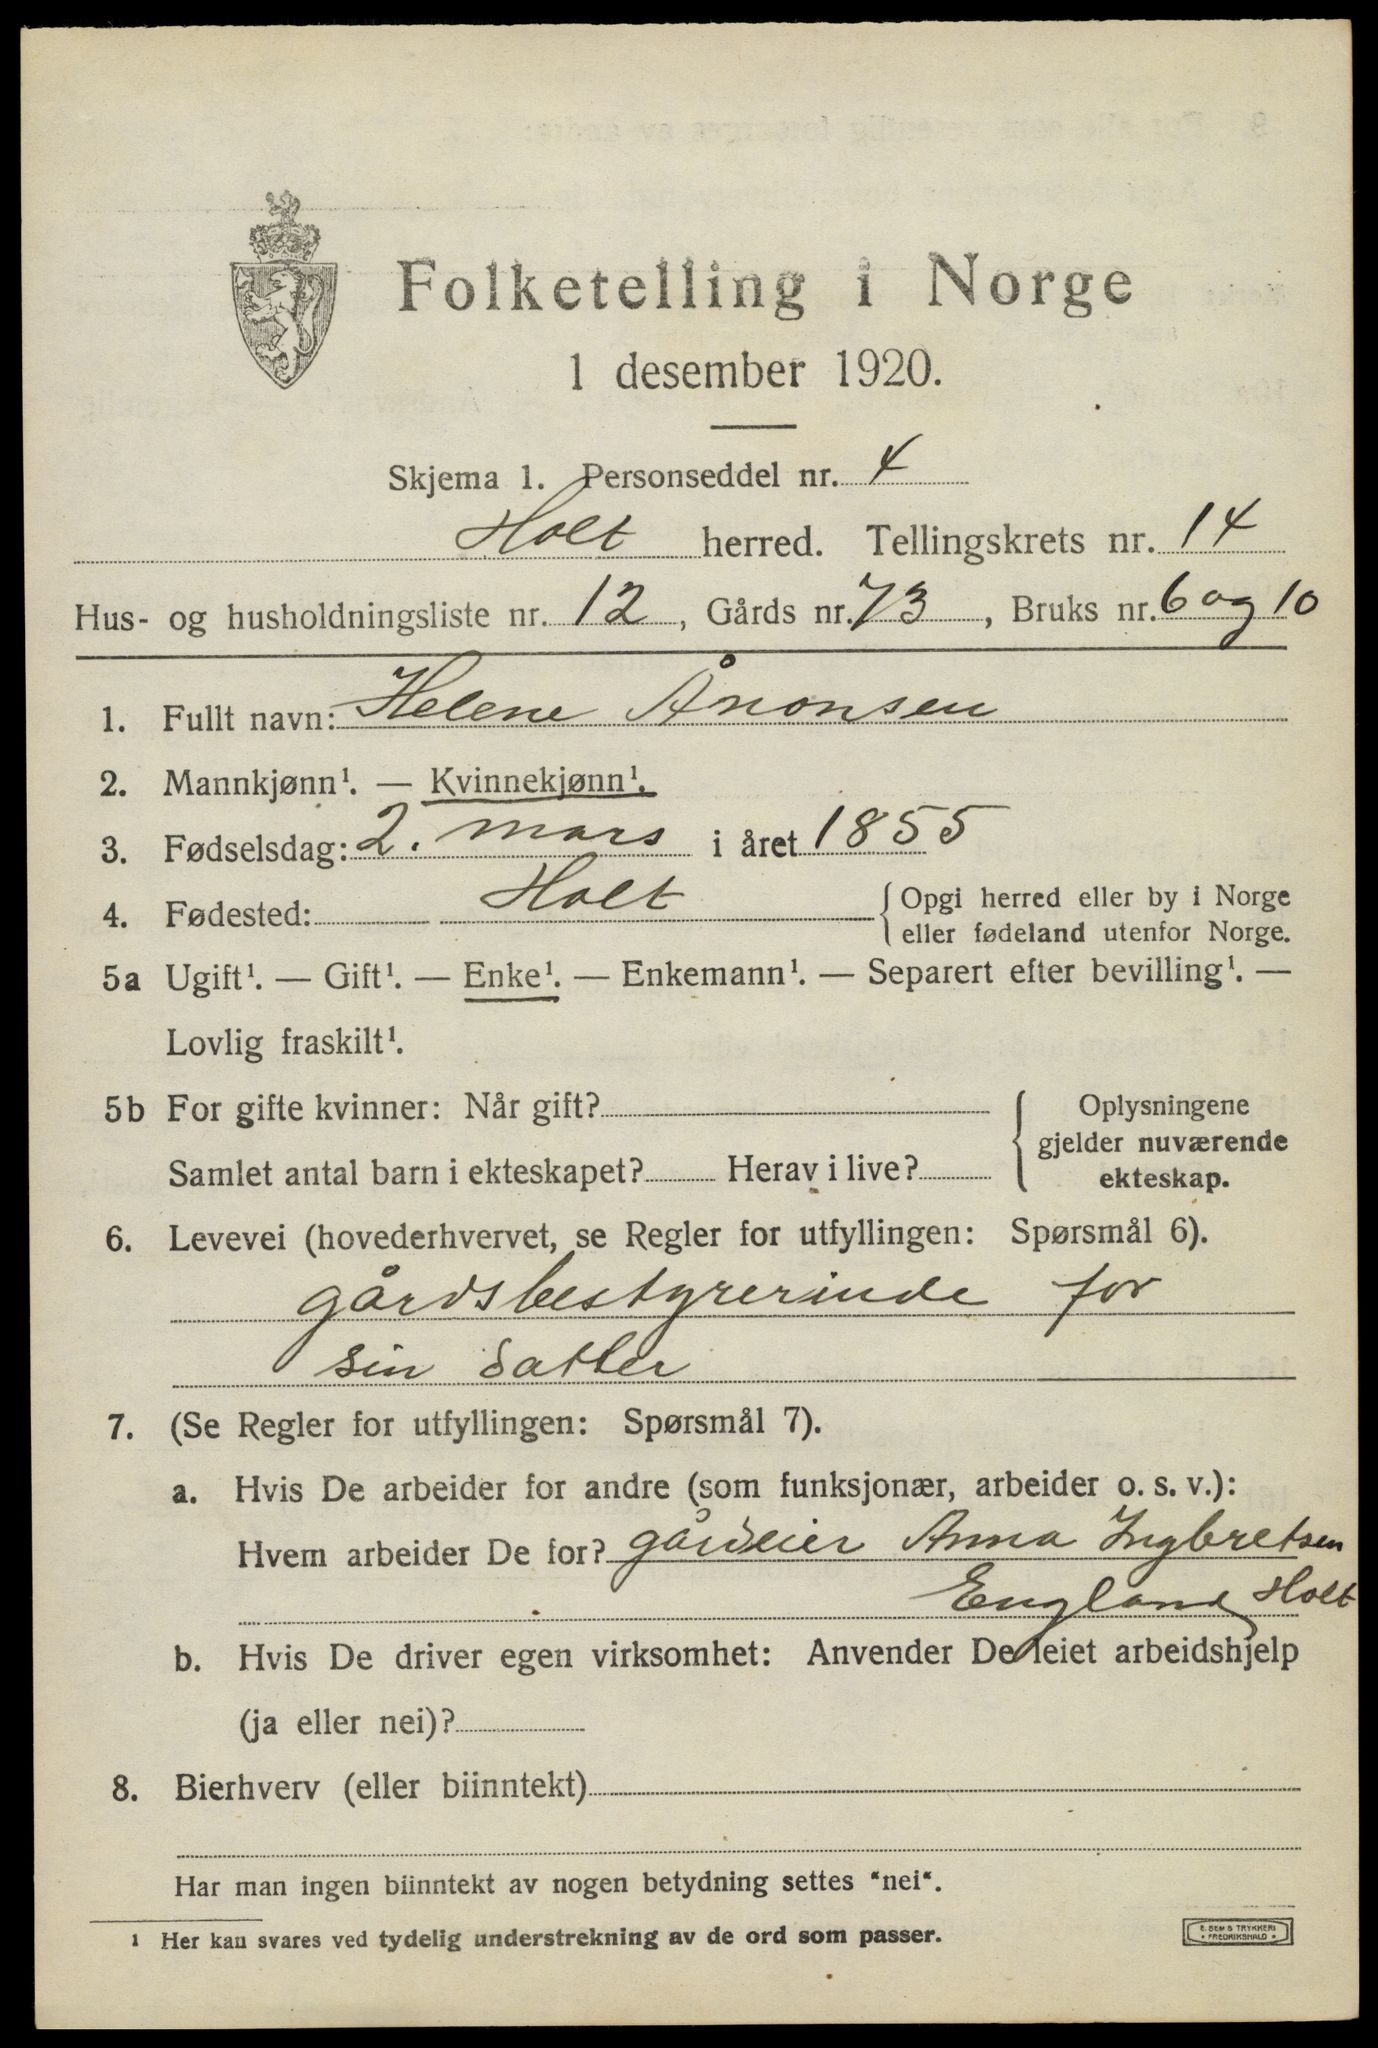 Folketelling i Norge
1 desember 1920.
Skjema 1. Personseddel nr. 4
Holt herred. Tellingskrets nr. 14
Hus- og husholdningsliste nr. 12, Gårds nr. 73, Bruks nr. 6 og 10
1. Fullt navn: Helene Ånonsen
2. Mannkjønn¹. — Kvinnekjønn¹.
3. Fødselsdag: 2. mars i året 1855
4. Fødested: Holt { Opgi herred eller by i Norge
eller fødeland utenfor Norge.
5a Ugift¹. — Gift¹. — Enke¹. — Enkemann¹. — Separert efter bevilling¹. —
Lovlig fraskilt¹.
5b For gifte kvinner: Når gift? { Oplysningene
gjelder nuværende
Samlet antal barn i ekteskapet? Herav i live? ekteskap.
6. Levevei (hovederhvervet, se Regler for utfyllingen: Spørsmål 6).
gårdsbestyrerinde for
sin datter
7. (Se Regler for utfyllingen: Spørsmål 7).
a. Hvis De arbeider for andre (som funksjonær, arbeider o. s. v.):
Hvem arbeider De for? gårdeier Anna Ingbretsen
England Holt
b. Hvis De driver egen virksomhet: Anvender De leiet arbeidshjelp
(ja eller nei)?
8. Bierhverv (eller biinntekt)
Har man ingen biinntekt av nogen betydning settes "nei".
1 Her kan svares ved tydelig understrekning av de ord som passer.
E. SEM'S TRYKKERI
• FREDRIKSHALD •